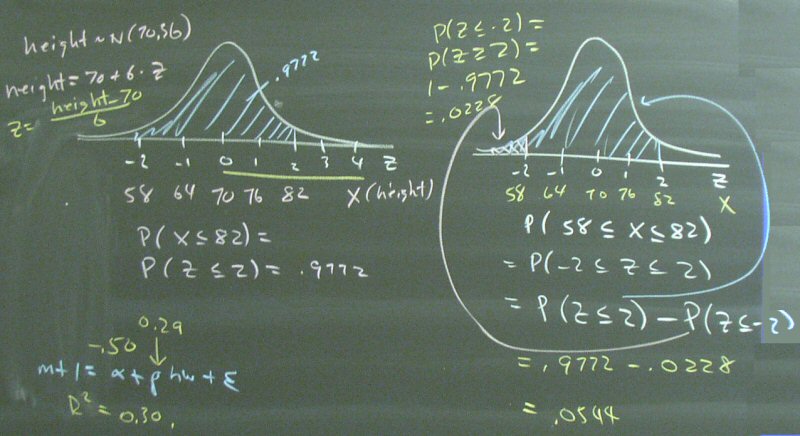 height ~ N(70,36)
height = 70 + 6 · Z
Z = height - 70
6
.9772
-2 -1 0 1 2 3 4 Z
58 64 70 76 82 X (height)
P(X ≤ 82) =
P(Z ≤ 2) = .9772
0.29
-.50 ↓
mt1 = α + β hw + ε
R² = 0.30.
P(Z ≤ -2) =
P(Z ≥ 2) =
1 - .9772
= .0228
-2 -1 0 1 2 Z
58 64 70 76 82 X
P(58 ≤ X ≤ 82)
= P(-2 ≤ Z ≤ 2)
= P(Z ≤ 2) - P(Z ≤ -2)
= .9772 - .0228
= .0544